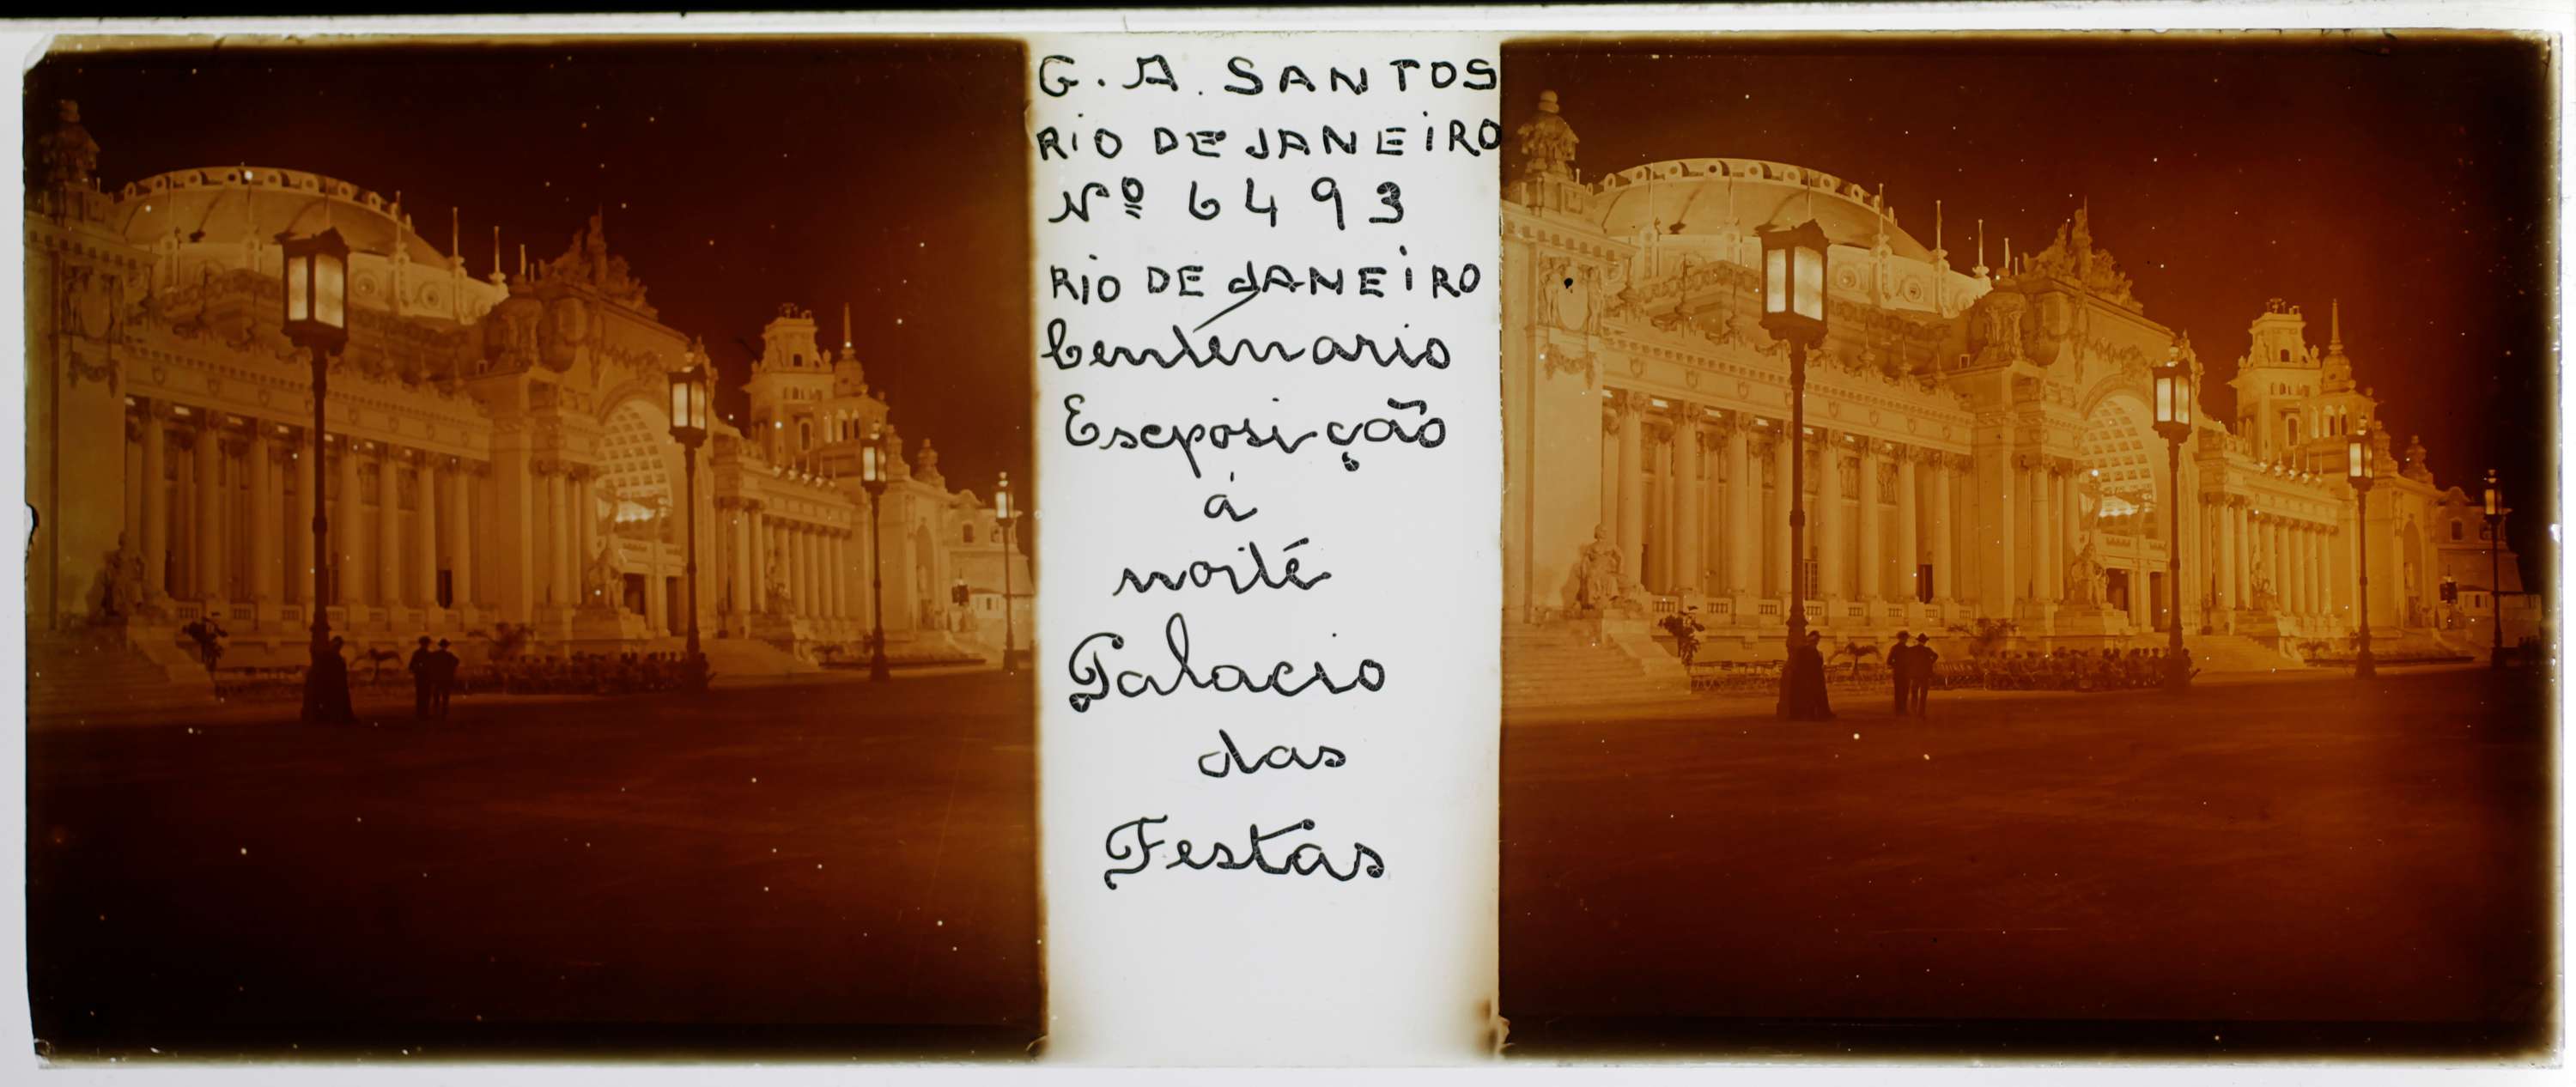 G. A. SANTOS
RIO DE JANEIRO
Nº 6493
RIO DE JANEIRO
Centenario
Exposição
á
noite
Palacio
das
Festas